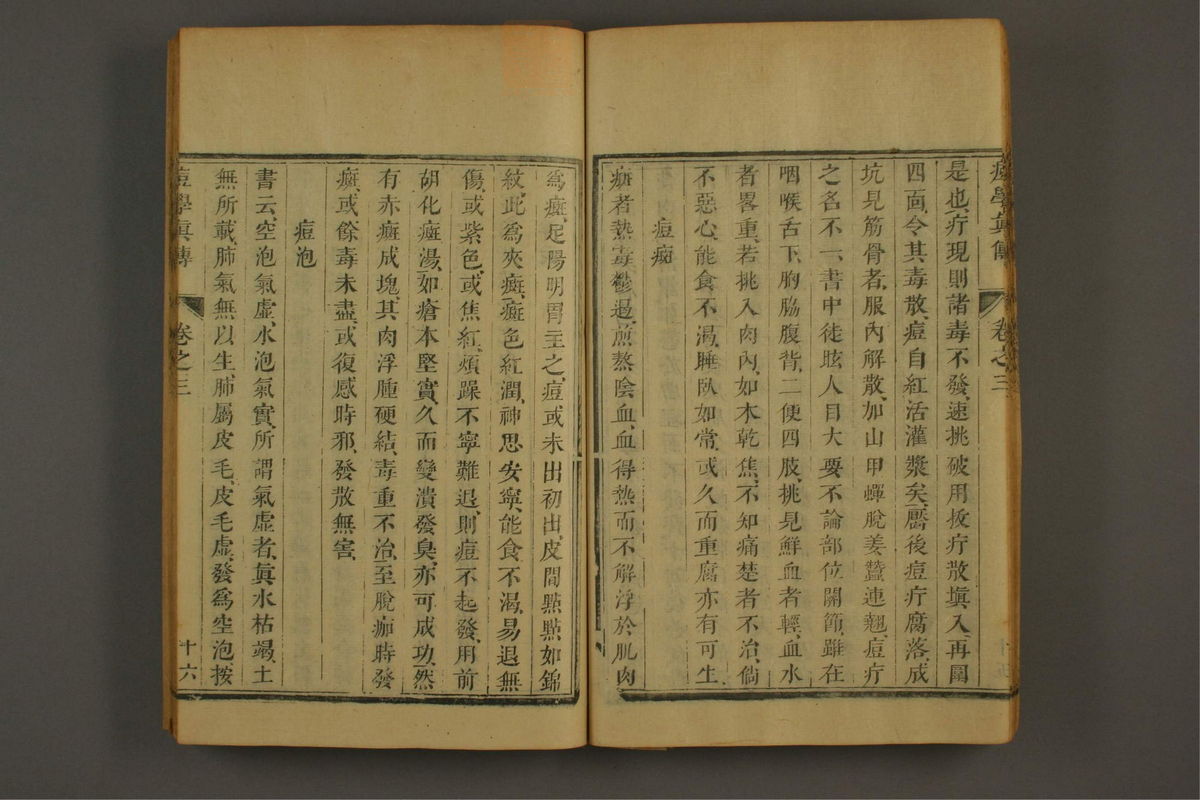 痘學真傳 卷之三
是也、疔現則諸毒不發、速挑破用拔疔散塡入、再圍
四面、令其毒散、痘自紅活灌漿矣、靨後痘疔腐落、成
坑見筋骨者、服內解散、加山甲蟬脫姜蠶連翹、痘疔
之名不一、書中徒眩人目、大要不論部位關節、雖在
咽喉舌下、胸脇腹背、二便四肢、挑見鮮血者輕、血水
者畧重、若挑入肉內、如木乾焦、不知痛楚者不治、倘
不惡心、能食不渴、睡臥如常、或久而重腐、亦有可生
痘癍
癍者熱毒鬱遏、煎熬陰血、血得熱而不解、浮於肌肉
爲癍、足陽明胃主之、痘或未出初出、皮間點點如錦
紋、此爲夾癍、癍色紅潤、神思安寧、能食不渴、易退無
傷、或紫色、或焦紅、煩躁不寧難退、則痘不起發、用前
胡化癍湯、如瘡本堅實、久而變潰發臭、亦可成功、然
有赤癍成塊、其肉浮腫硬結、毒重不治、至脫痂時發
癍、或餘毒未盡、或復感時邪、發散無害、
痘泡
書云、空泡氣虛、水泡氣實、所謂氣虛者、眞水枯竭、土
無所載、肺氣無以生、肺屬皮毛、皮毛虛、發爲空泡、按
痘學眞傳 卷之三 十六